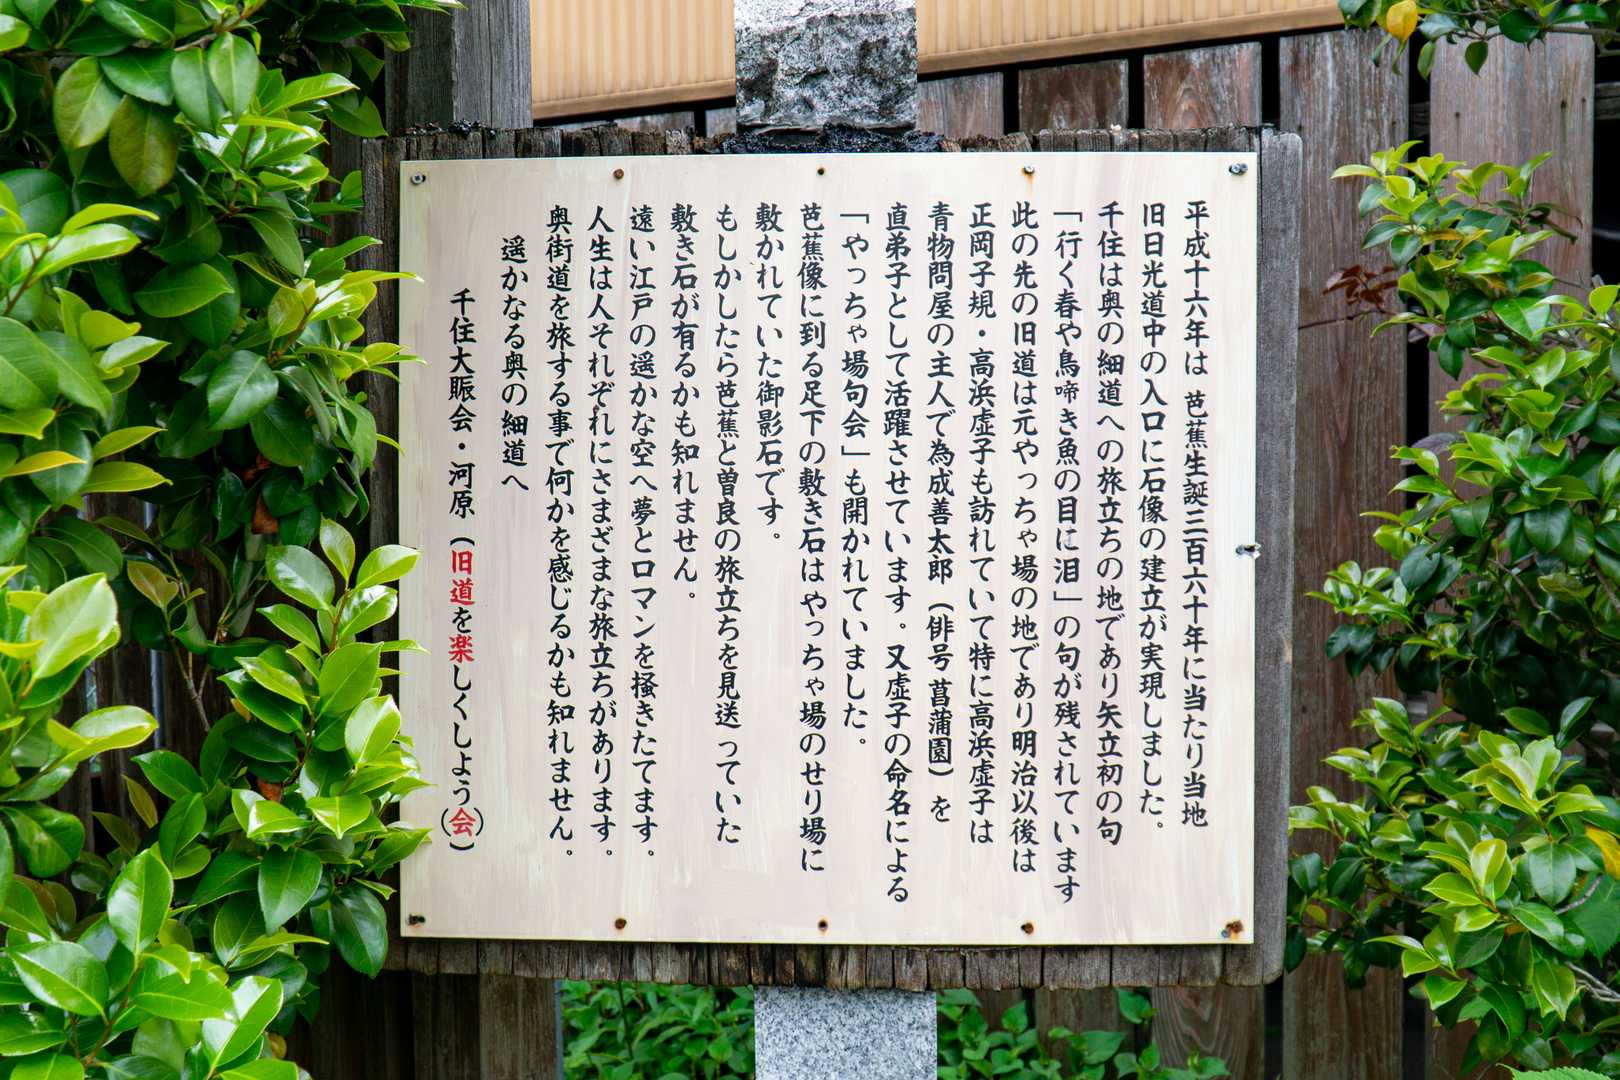 平成十六年は 芭蕉生誕三百六十年に当たり当地
旧日光道中の入口に石像の建立が実現しました。
千住は奥の細道への旅立ちの地であり矢立初の句
「行く春や鳥啼き魚の目に泪」の句が残されています
此の先の旧道は元やっちゃ場の地であり明治以後は
正岡子規・高浜虚子も訪れていて特に高浜虚子は
青物問屋の主人で為成善太郎(俳号 菖蒲園)を
直弟子として活躍させています。又虚子の命名による
「やっちゃ場句会」も開かれていました。
芭蕉像に到る足下の敷き石はやっちゃ場のせり場に
敷かれていた御影石です。
もしかしたら芭蕉と曽良の旅立ちを見送っていた
敷き石が有るかも知れません。
遠い江戸の遥かな空へ夢とロマンを掻きたてます。
人生は人それぞれにさまざまな旅立ちがあります。
奥街道を旅する事で何かを感じるかも知れません。
遥かなる奥の細道へ
千住大賑会・河原(旧道を楽しくしよう(会))